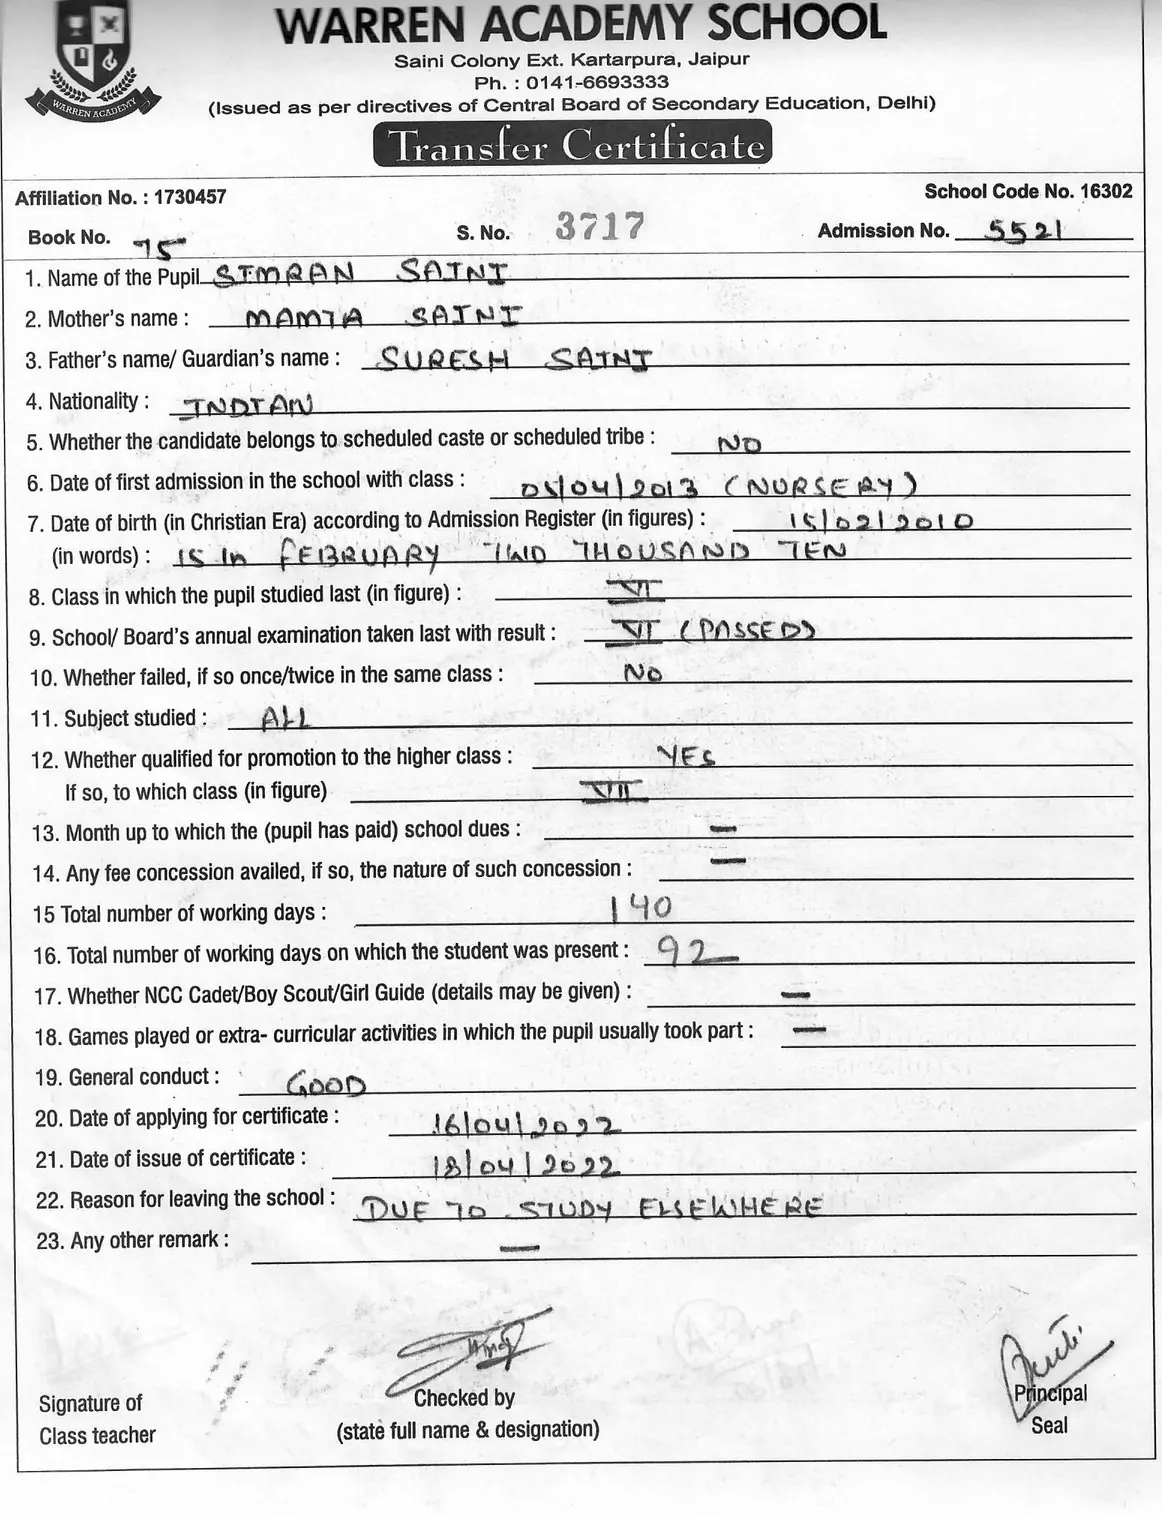 WARREN ACADEMY SCHOOL
Saini Colony Ext. Kartarpura, Jaipur
Ph. : 0141-6693333
(Issued as per directives of Central Board of Secondary Education, Delhi)
WARREN ACADEMY
Transfer Certificate
Affiliation No. : 1730457 School Code No. 16302
Book No. 75 S. No. 3717 Admission No. 5521
1. Name of the Pupil SIMRAN SAINI
2. Mother's name : MAMTA SAINI
3. Father's name/ Guardian's name : SURESH SAINI
4. Nationality : INDIAN
5. Whether the candidate belongs to scheduled caste or scheduled tribe : NO
6. Date of first admission in the school with class : 05/04/2013 (NURSERY)
7. Date of birth (in Christian Era) according to Admission Register (in figures) : 15/02/2010
(in words) : 15 th FEBRUARY TWO THOUSAND TEN
8. Class in which the pupil studied last (in figure) : VI
9. School/ Board's annual examination taken last with result : VI (PASSED)
10. Whether failed, if so once/twice in the same class : NO
11. Subject studied : ALL
12. Whether qualified for promotion to the higher class : YES
If so, to which class (in figure) VII
13. Month up to which the (pupil has paid) school dues : —
14. Any fee concession availed, if so, the nature of such concession : —
15 Total number of working days : 140
16. Total number of working days on which the student was present : 92
17. Whether NCC Cadet/Boy Scout/Girl Guide (details may be given) : —
18. Games played or extra- curricular activities in which the pupil usually took part : —
19. General conduct : GOOD
20. Date of applying for certificate : 16/04/2022
21. Date of issue of certificate : 18/04/2022
22. Reason for leaving the school : DUE TO STUDY ELSEWHERE
23. Any other remark : —
Signature of Checked by Principal
Class teacher (state full name & designation) Seal